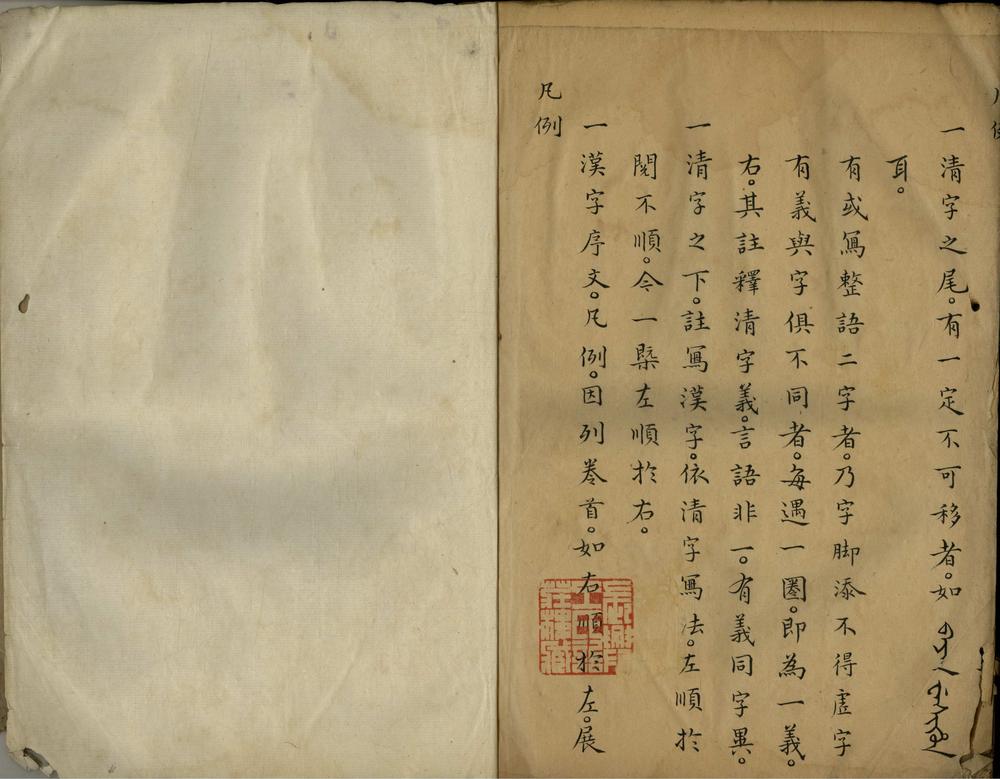 凡例
一漢字序文。凡例。因列卷首。如右順於左。展
閱不順。今一槩左順於右。
一清字之下。註寫漢字。依清字寫法。左順於
右。其註釋清字義。言語非一。有義同字異。
有義與字俱不同者。每遇一圈。即為一義。
有或寫整語二字者。乃字脚添不得虛字
耳。
一清字之尾。有一定不可移者。如